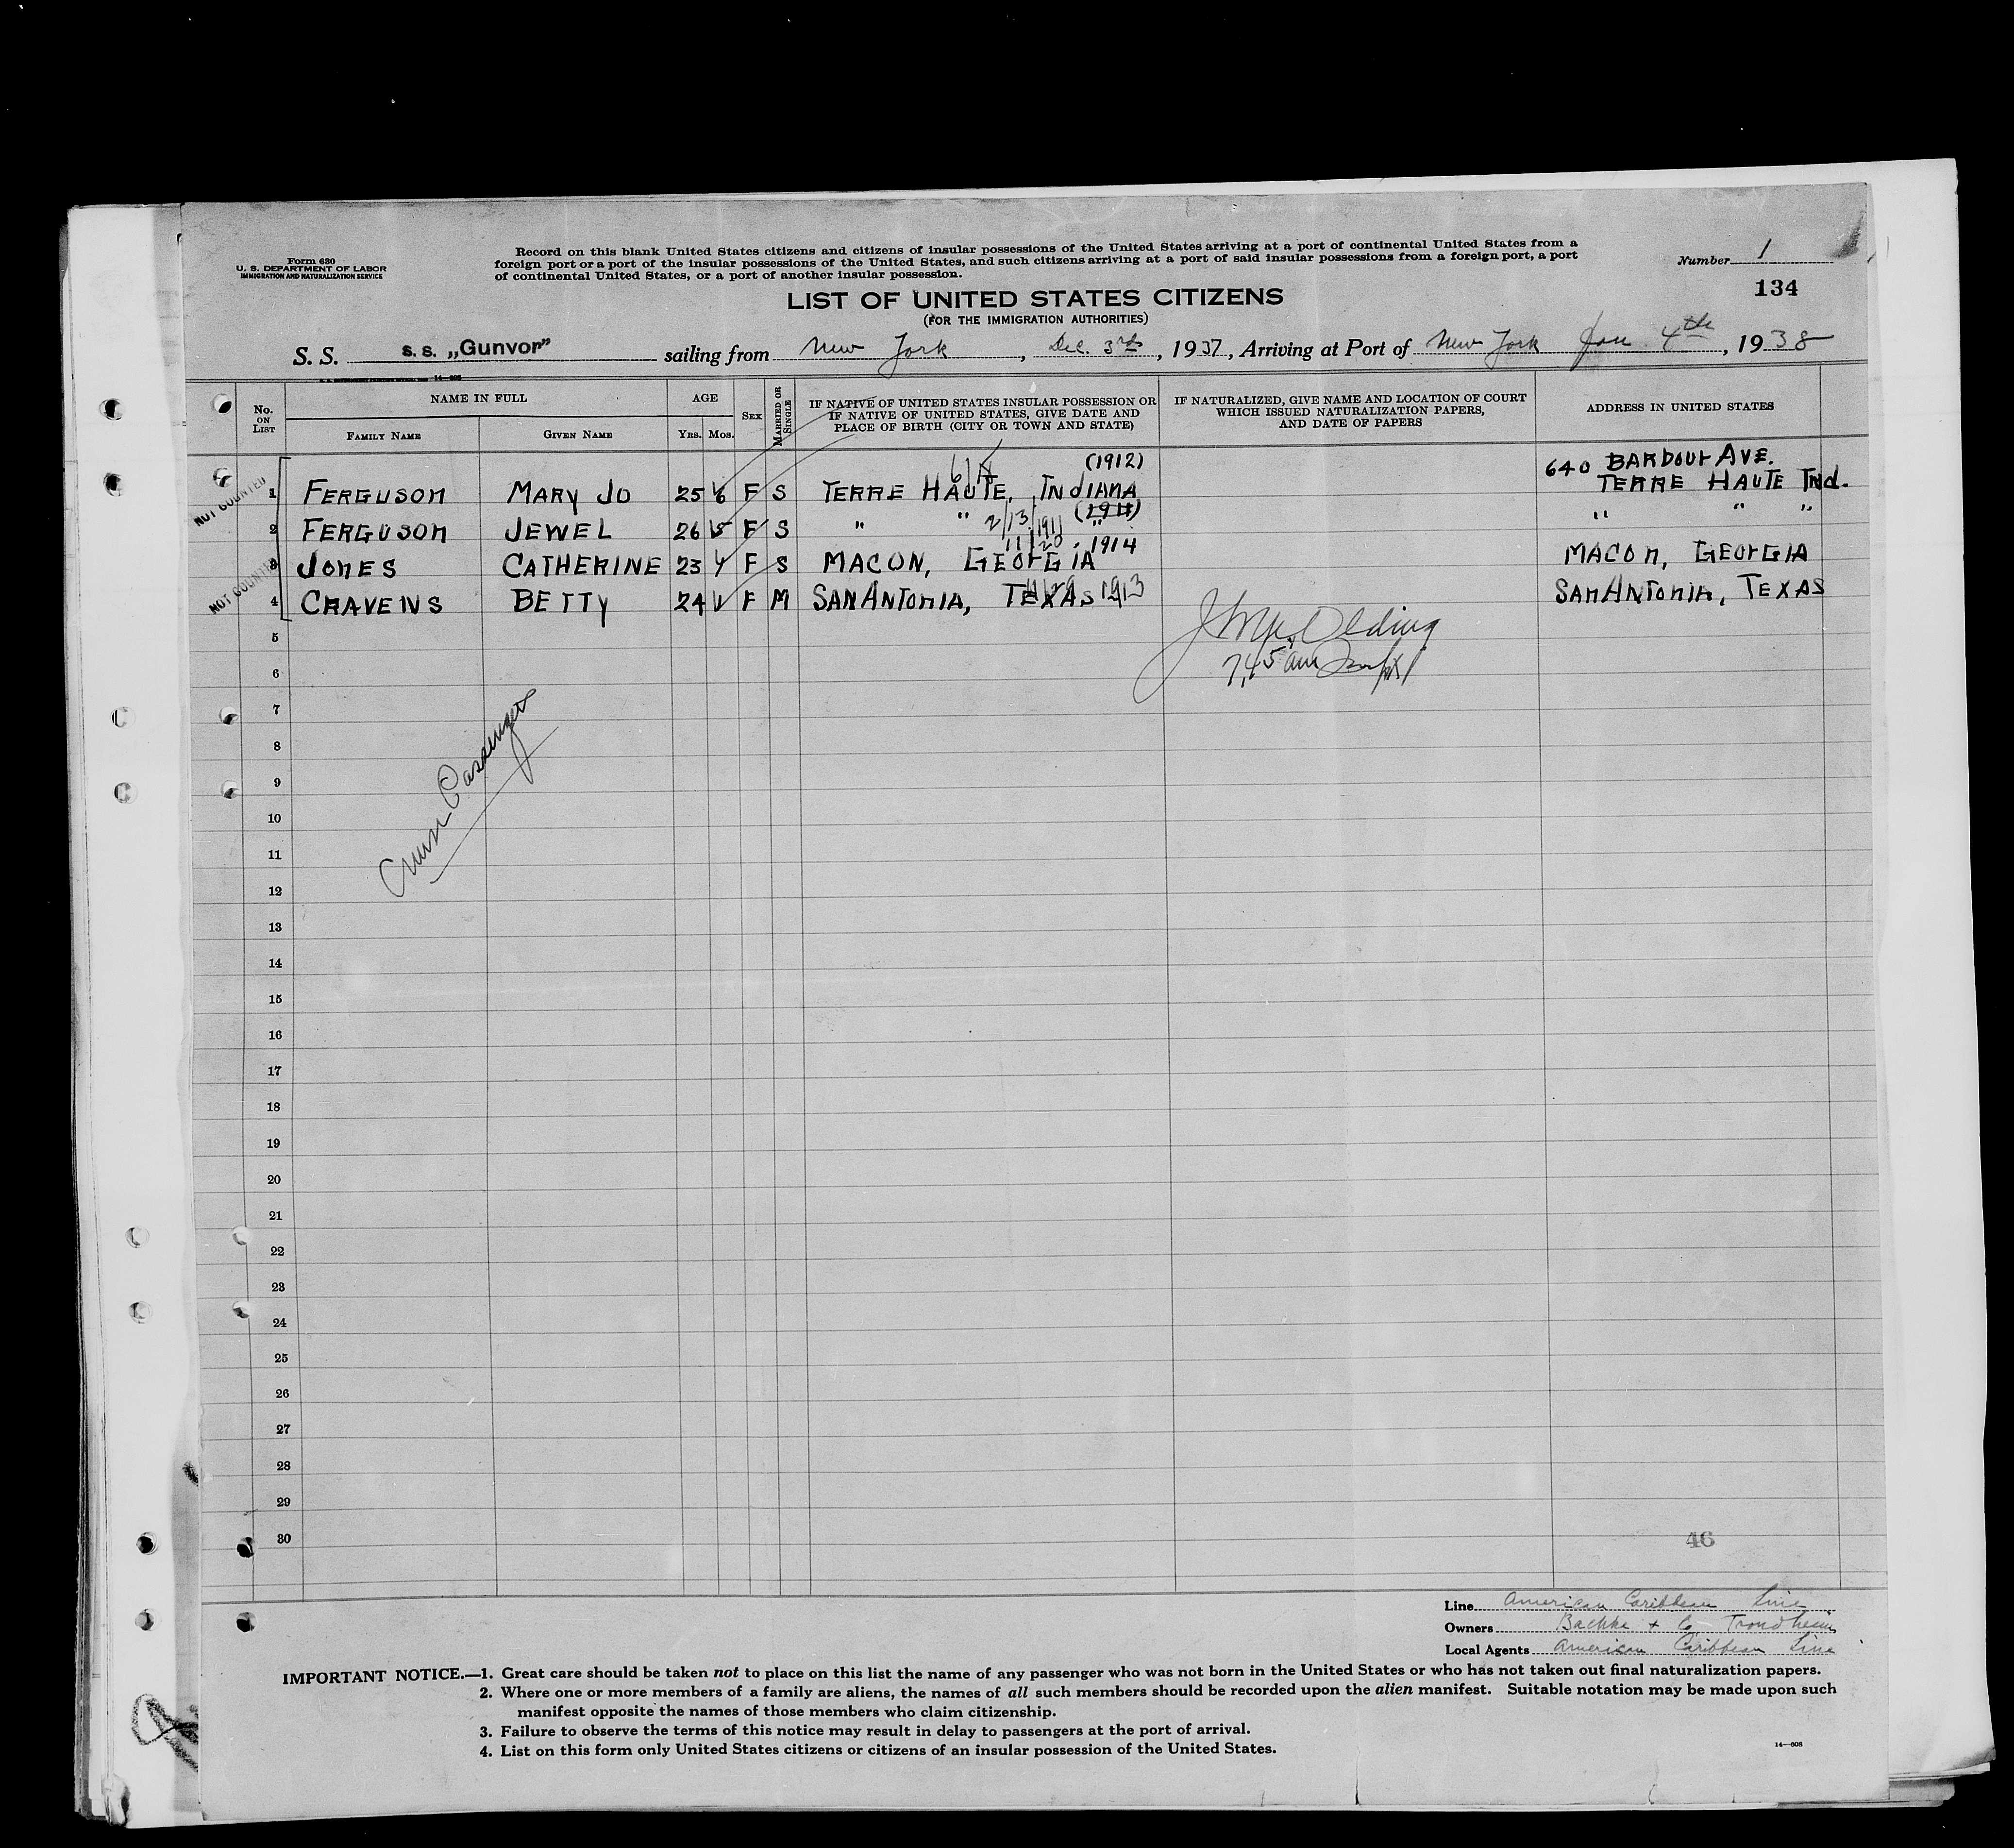 Form 630
U. S. DEPARTMENT OF LABOR
IMMIGRATION AND NATURALIZATION SERVICE
Record on this blank United States citizens and citizens of insular possessions of the United States arriving at a port of continental United States from a
foreign port or a port of the insular possessions of the United States, and such citizens arriving at a port of said insular possessions from a foreign port, a port
of continental United States, or a port of another insular possession.
Number 1
134
LIST OF UNITED STATES CITIZENS
(FOR THE IMMIGRATION AUTHORITIES)
S. S. s. s. „Gunvor” sailing from New York, Dec. 3rd, 1937, Arriving at Port of New York Jan. 4th, 1938
No. ON LIST
NAME IN FULL
FAMILY NAME
GIVEN NAME
AGE
YRS. MOS.
SEX
MARRIED OR SINGLE
IF NATIVE OF UNITED STATES INSULAR POSSESSION OR
IF NATIVE OF UNITED STATES, GIVE DATE AND
PLACE OF BIRTH (CITY OR TOWN AND STATE)
IF NATURALIZED, GIVE NAME AND LOCATION OF COURT
WHICH ISSUED NATURALIZATION PAPERS,
AND DATE OF PAPERS
ADDRESS IN UNITED STATES
(1912) 640 BARBOUR AVE.
NOT COUNTED
1 FERGUSON MARY JO 25 6 F S TERRE HAUTE, INDIANA TERRE HAUTE Ind.
(1911)
2 FERGUSON JEWEL 26 F S " " 2/13/1911 " " "
11/20 1914
NOT COUNTED
3 JONES CATHERINE 23 F S MACON, GEORGIA MACON, GEORGIA
4 CRAVENS BETTY 24 F M SAN ANTONIA, TEXAS 1913 SAN ANTONIA, TEXAS
5
7,45 am
6
7
Cruise Passenger
8
9
10
11
12
13
14
15
16
17
18
19
20
21
22
23
24
25
26
27
28
29
30
46
Line American Caribbean Line
Owners Bachke + Co Trondheim
Local Agents American Caribbean Line
IMPORTANT NOTICE.—1. Great care should be taken not to place on this list the name of any passenger who was not born in the United States or who has not taken out final naturalization papers.
2. Where one or more members of a family are aliens, the names of all such members should be recorded upon the alien manifest. Suitable notation may be made upon such
manifest opposite the names of those members who claim citizenship.
3. Failure to observe the terms of this notice may result in delay to passengers at the port of arrival.
4. List on this form only United States citizens or citizens of an insular possession of the United States.
14—608